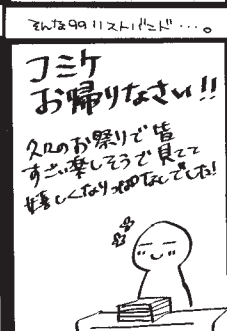 そんな99リストバンド…。
コミケ
お帰りなさい!!
久々のお祭りで皆
すごい楽しそうで見てて
嬉しくなりっぱなしでした!